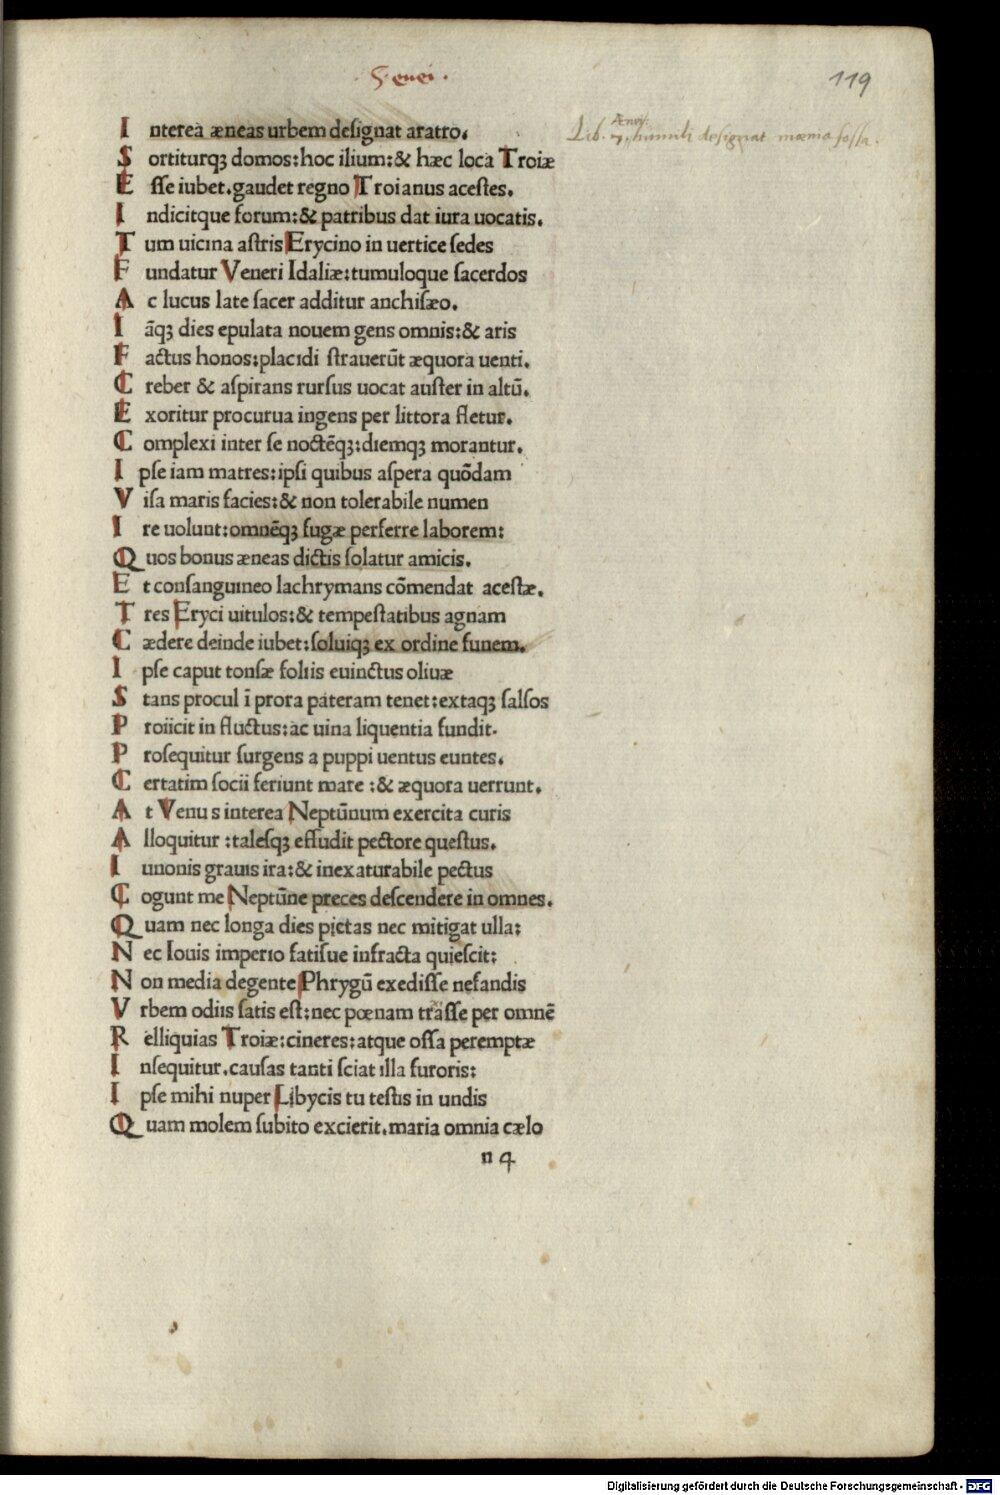 5. enei.
119
Interea æneas urbem designat aratro.
Lib. Ænei. 7. humili designat mœnia fossa.
Sortiturqꝫ domos: hoc ilium: & hæc loca Troiæ
Esse iubet. gaudet regno Troianus acestes.
Indicitque forum: & patribus dat iura uocatis.
Tum uicina astris Erycino in uertice sedes
Fundatur Veneri Idaliæ: tumuloque sacerdos
Ac lucus late sacer additur anchisæo.
Iāqꝫ dies epulata nouem gens omnis: & aris
Factus honos: placidi strauerūt æquora uenti.
Creber & aspirans rursus uocat auster in altū.
Exoritur procurua ingens per littora fletur.
Complexi inter se noctēqꝫ: diemqꝫ morantur.
Ipse iam matres: ipsi quibus aspera quōdam
Visa maris facies: & non tolerabile numen
Ire uolunt: omnēqꝫ fugæ perferre laborem:
Quos bonus æneas dictis solatur amicis.
Et consanguineo lachrymans cōmendat acestæ.
Tres Eryci uitulos: & tempestatibus agnam
Cædere deinde iubet: soluiqꝫ ex ordine funem.
Ipse caput tonsæ foliis euinctus oliuæ
Stans procul ī prora pateram tenet: extaqꝫ salsos
Proiicit in fluctus: ac uina liquentia fundit.
Prosequitur surgens a puppi uentus euntes.
Certatim socii feriunt mare : & æquora uerrunt.
At Venus interea Neptūnum exercita curis
Alloquitur : talesqꝫ effudit pectore questus.
Iunonis grauis ira: & inexaturabile pectus
Cogunt me Neptūne preces descendere in omnes.
Quam nec longa dies pietas nec mitigat ulla:
Nec Iouis imperio fatisue infracta quiescit:
Non media degente Phrygū exedisse nefandis
Vrbem odiis satis est: nec pœnam trāsse per omnē
Relliquias Troiæ: cineres: atque ossa peremptæ
Insequitur. causas tanti sciat illa furoris:
Ipse mihi nuper Libycis tu testis in undis
Quam molem subito excierit. maria omnia cælo
n 4
Digitalisierung gefördert durch die Deutsche Forschungsgemeinschaft - DFG